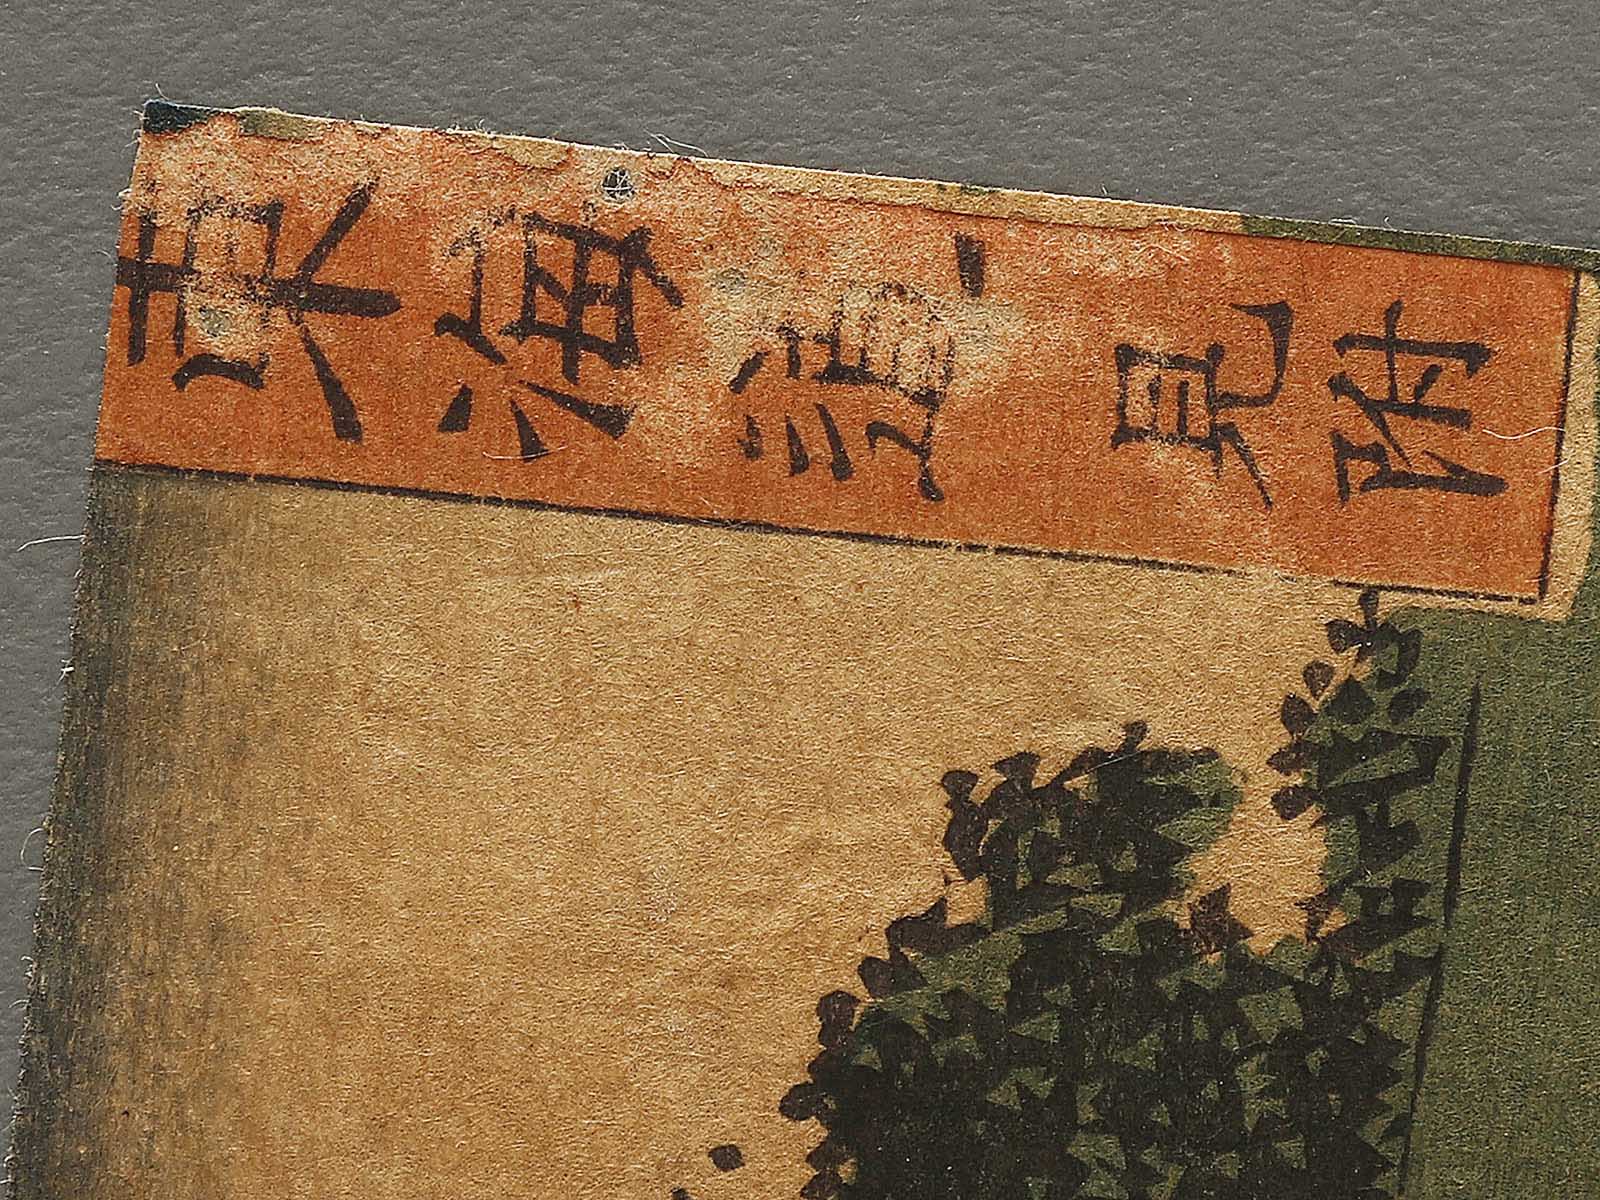 東海道 見附